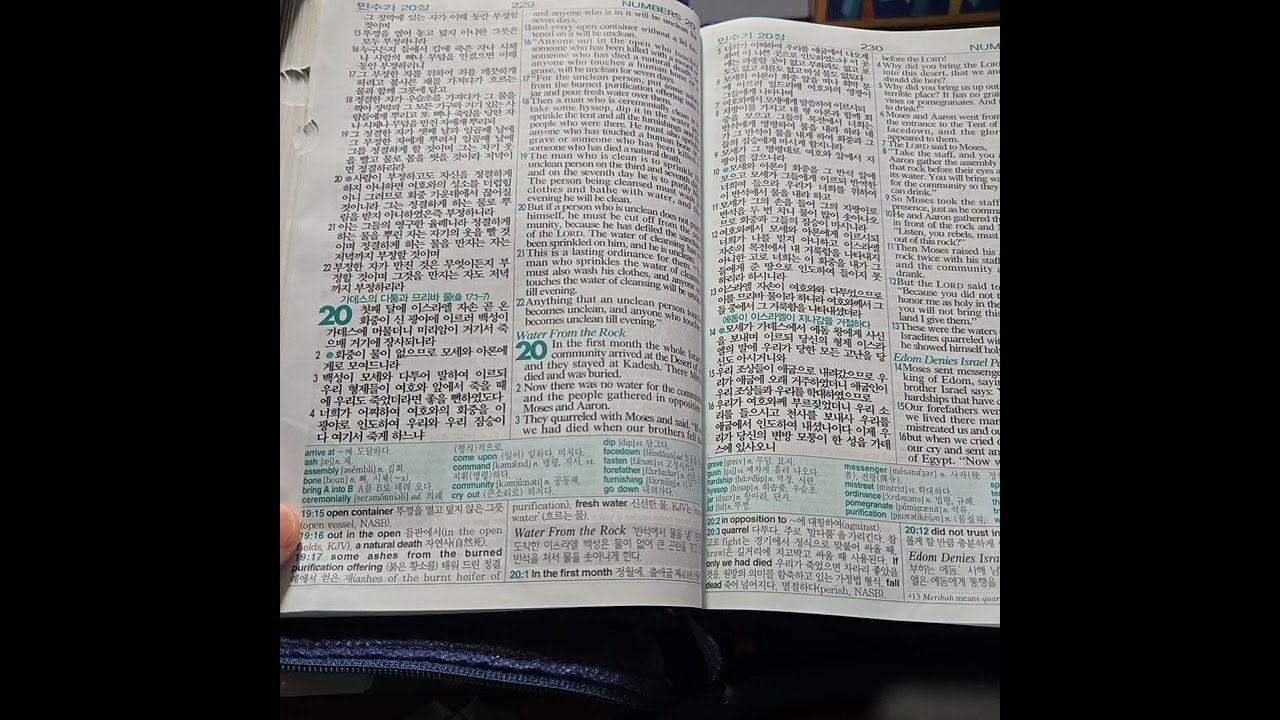 민수기 20장
229
NUMBERS 20
그 장막에 있는 자가 이레 동안 부정할
것이며
15 뚜껑을 열어 놓고 덮지 아니한 그릇은
모두 부정하니라
16 누구든지 들에서 칼에 죽은 자나 시체
나 사람의 뼈나 무덤을 만졌으면 이레
동안 부정하리니
17 그 부정한 자를 위하여 죄를 깨끗하게
하려고 불사른 재를 가져다가 흐르는
물과 함께 그릇에 담고
18 정결한 자가 우슬초를 가져다가 그 물을
찍어 장막과 그 모든 기구와 거기 있는 사
람들에게 뿌리고 또 뼈나 죽임을 당한 자
나 시체나 무덤을 만진 자에게 뿌리되
19 그 정결한 자가 셋째 날과 일곱째 날에
그 부정한 자에게 뿌려서 일곱째 날에
그를 정결하게 할 것이며 그는 자기 옷
을 빨고 물로 몸을 씻을 것이라 저녁이
면 정결하리라
20 ●사람이 부정하고도 자신을 정결하게
하지 아니하면 여호와의 성소를 더럽힘
이니 그러므로 회중 가운데에서 끊어질
것이니라 그는 정결하게 하는 물로 뿌
림을 받지 아니하였은즉 부정하니라
21 이는 그들의 영구한 율례니라 정결하게
하는 물을 뿌린 자는 자기의 옷을 빨 것
이며 정결하게 하는 물을 만지는 자는
저녁까지 부정할 것이며
22 부정한 자가 만진 것은 무엇이든지 부
정할 것이며 그것을 만지는 자도 저녁
까지 부정하리라
가데스의 다툼과 므리바 물(출 17:1-7)
20 첫째 달에 이스라엘 자손 곧 온
회중이 신 광야에 이르러 백성이
가데스에 머물더니 미리암이 거기서 죽
으매 거기에 장사되니라
2 ●회중이 물이 없으므로 모세와 아론에
게로 모여드니라
3 백성이 모세와 다투어 말하여 이르되
우리 형제들이 여호와 앞에서 죽을 때
에 우리도 죽었더라면 좋을 뻔하였도다
4 너희가 어찌하여 여호와의 회중을 이
광야로 인도하여 우리와 우리 짐승이
다 여기서 죽게 하느냐
and anyone who is in it will be unclean for
seven days,
15 and every open container without a lid
tened on it will be unclean.
16 "Anyone out in the open who touches
someone who has been killed with a sword
someone who has died a natural death,
anyone who touches a human bone
grave, will be unclean for seven days.
17 "For the unclean person, put some
from the burned purification offering into
jar and pour fresh water over them.
18 Then a man who is ceremonially clean is
take some hyssop, dip it in the water
sprinkle the tent and all the furnishings and
people who were there. He must also sprinkle
anyone who has touched a human bone
grave or someone who has been killed
someone who has died a natural death.
19 The man who is clean is to sprinkle
unclean person on the third and seventh
and on the seventh day he is to purify
The person being cleansed must wash
clothes and bathe with water, and
evening he will be clean.
20 But if a person who is unclean does not
himself, he must be cut off from the
munity, because he has defiled the sanctuary
of the LORD. The water of cleansing has
been sprinkled on him, and he is unclean.
21 This is a lasting ordinance for them. "The
man who sprinkles the water of cleansing
must also wash his clothes, and anyone
touches the water of cleansing will be unclean
till evening.
22 Anything that an unclean person touches
becomes unclean, and anyone who touches
becomes unclean till evening."
Water From the Rock
20 In the first month the whole Israelite
community arrived at the Desert of
and they stayed at Kadesh. There Miriam
died and was buried.
2 Now there was no water for the community
and the people gathered in opposition
Moses and Aaron.
3 They quarreled with Moses and said, "If
we had died when our brothers fell
arrive at ~에 도달하다.
ash [æʃ] n. 재.
assembly [əsémbli] n. 집회.
bone [boun] n. 뼈, 시체(~s).
bring A into B A를 B로 데려 오다.
ceremonially [serəmóuniəli] ad. 의례
(형식)적으로
come upon (일이) 일하다, 미치다.
command [kəmǽnd] n. 명령, 지시, vt.
지휘(명령)하다.
community [kəmjú:nəti] n. 공동체.
cry out (큰소리로) 외치다.
dip [dip] vt. 담그다.
facedown
fasten
forefather
furnishing
go down 내려가다.
19:15 open container 뚜껑을 열고 덮지 않은 그릇
(open vessel, NASB).
19:16 out in the open 들판에서(in the open
fields, KJV), a natural death 자연사(自然死).
19:17 some ashes from the burned
purification offering (붉은 황소를) 태워 드린 정결
례에서 얻은 재(ashes of the burnt heifer of
purification), fresh water 신선한 물, KJV는
water (흐르는 물).
Water From the Rock
도착한 이스라엘 백성은 물이 없어 큰 곤란을
반석을 쳐서 물을 솟아나게 한다.
20:1 In the first month 정월에,
민수기 20장
230
NUM
5 너희가 어찌하여 우리를 애굽에서 나오게
하여 이 나쁜 곳으로 인도하였느냐 이 곳
에는 파종할 곳이 없고 무화과도 없고 포
도도 없고 석류도 없고 마실 물도 없도다
6 모세와 아론이 회중 앞을 떠나 회막 문
에 이르러 엎드리매 여호와의 영광이
그들에게 나타나며
7 여호와께서 모세에게 말씀하여 이르시되
8 지팡이를 가지고 네 형 아론과 함께 회
중을 모으고 그들의 목전에서 너희는
반석에게 명령하여 물을 내라 하라 네
가 그 반석이 물을 내게 하여 회중과 그
들의 짐승에게 마시게 할지니라
9 모세가 그 명령대로 여호와 앞에서 지
팡이를 잡으니라
10 ●모세와 아론이 회중을 그 반석 앞에
모으고 모세가 그들에게 이르되 반역한
너희여 들으라 우리가 너희를 위하여
이 반석에서 물을 내랴 하고
11 모세가 그의 손을 들어 그의 지팡이로
반석을 두 번 치니 물이 많이 솟아나오
므로 회중과 그들의 짐승이 마시니라
12 여호와께서 모세와 아론에게 이르시되
너희가 나를 믿지 아니하고 이스라엘
자손의 목전에서 내 거룩함을 나타내지
아니한 고로 너희는 이 회중을 내가 그
들에게 준 땅으로 인도하여 들이지 못
하리라 하시니라
13 이스라엘 자손이 여호와와 다투었으므로
이를 므리바 물이라 하니라 여호와께서 그
들 중에서 그 거룩함을 나타내셨더라
에돔이 이스라엘이 지나감을 거절하다
14 ●모세가 가데스에서 에돔 왕에게 사신
을 보내며 이르되 당신의 형제 이스라
엘의 말에 우리가 당한 모든 고난을 당
신도 아시거니와
15 우리 조상들이 애굽으로 내려갔으므로 우
리가 애굽에 오래 거주하였더니 애굽인이
우리 조상들과 우리를 학대하였으므로
16 우리가 여호와께 부르짖었더니 우리 소
리를 들으시고 천사를 보내사 우리를
애굽에서 인도하여 내셨나이다 이제 우
리가 당신의 변방 모퉁이 한 성읍 가데
스에 있사오니
before the LORD!
4 Why did you bring the LORD
into this desert, that we and
should die here?
5 Why did you bring us up out
terrible place? It has no grain
vines or pomegranates. And
to drink!"
6 Moses and Aaron went from
the entrance to the Tent of
facedown, and the glory
appeared to them.
7 The LORD said to Moses,
8 "Take the staff, and you
Aaron gather the assembly
that rock before their eyes
its water. You will bring wa
for the community so they
can drink."
9 So Moses took the staff
presence, just as he comm
10 He and Aaron gathered the
"Listen, you rebels, must
out of this rock?"
11 Then Moses raised his
rock twice with his staff.
and the community a
drank.
12 But the LORD said to
"Because you did not t
honor me as holy in the
you will not bring this
land I give them."
13 These were the waters o
Israelites quarreled with
he showed himself holy
Edom Denies Israel Pa
14 Moses sent messenger
king of Edom, sayin
brother Israel says: Y
hardships that have c
15 Our forefathers went
we lived there many
mistreated us and ou
16 but when we cried o
our cry and sent an
of Egypt. "Now w
grave [greiv] n. 무덤, 묘지.
gush [gʌʃ] vi. 세차게 흘러 나오다.
hardship [háːrdʃip] n. 역경, 시련.
hyssop [hísəp] n. 히솝풀, 우슬초.
jar [dʒɑːr] n. 항아리, 단지.
lid [lid] n. 뚜껑.
messenger [mésəndʒər] n. 사자(使
전령(傳令)
mistreat [mistríːt] vt. 학대하다.
ordinance [ɔ́ːrdənəns] n. 법령, 규례.
pomegranate [pɑ́məgrænit] n. 석류.
purification [pjuərəfikéiʃən] n. (물질적,
20:2 in opposition to ~에 대항하여(against).
20:3 quarrel 다투다. 주로 '말다툼'을 가리킨다. 참
고로 fight는 경기에서 정식으로 맞붙어 싸울 때,
brawl은 길거리에 치고박고 싸울 때 사용된다. If
only we had died 우리가 죽었으면 차라리 좋았을
것을. 원망의 의미를 함축하고 있는 가정법 형식, fall
dead 죽어 넘어지다, 멸절하다(perish, NASB).
20:12 did not trust in
룩게 할 만큼 충분하게
Edom Denies Isra
부하는 에돔.
엘은 에돔에게 통행을
#13 Meribah means quar